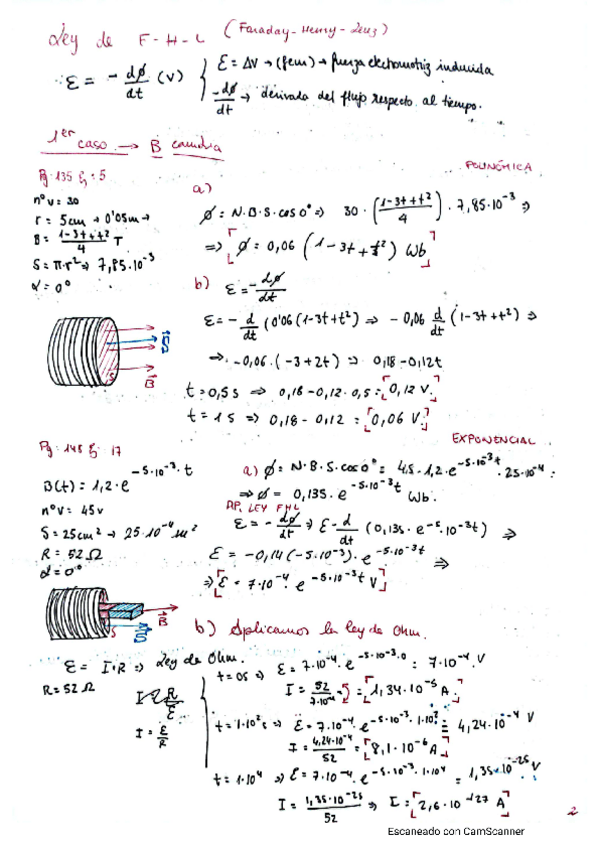 Ley de F-H-L (Faraday-Henry-Lenz)
ε = - dϕ/dt (V) { ε = ΔV → (fem) → fuerza electromotriz inducida
-dϕ/dt → derivada del flujo respecto al tiempo.
1er caso → B cambia
POLINÓMICA
Pg. 135 Ej: 5
nºv = 30
r = 5cm → 0'05m →
B = (1-3t+t²)/4 T
S = π·r² ⇒ 7,85·10⁻³
α = 0º
a)
ϕ = N·B·S·cos0º ⇒ 30·((1-3t+t²)/4)·7,85·10⁻³ ⇒
⇒ ϕ = 0,06 (1-3t+t²) Wb
b) ε = -dϕ/dt
ε = - d/dt (0'06(1-3t+t²) ⇒ -0,06 d/dt (1-3t+t²) ⇒
⇒ -0,06·(-3+2t) ⇒ 0,18-0,12t
t = 0,5s ⇒ 0,18-0,12·0,5 = 0,12 V.
t = 1s ⇒ 0,18-0,12 = 0,06 V.
S
B
EXPONENCIAL
Pg. 148 Ej: 17
B(t) = 1,2·e^-5·10⁻³·t
nºv = 45v
S = 25cm² → 25·10⁻⁴ m²
R = 52 Ω
α = 0º
a) ϕ = N·B·S·cos0º = 45·1,2·e^-5·10⁻³t·25·10⁻⁴ =
⇒ ϕ = 0,135·e^-5·10⁻³t Wb.
AP. LEY FHL
ε = -dϕ/dt ⇒ ε - d/dt (0,135·e^-5·10⁻³t) ⇒
ε = -0,14(-5·10⁻³)·e^-5·10⁻³t ⇒
⇒ ε = 7·10⁻⁴·e^-5·10⁻³t V
B
S
b) Aplicamos la ley de Ohm.
ε = I·R ⇒ Ley de Ohm.
R = 52 Ω
I = R/ε
I = ε/R
t = 0s ⇒ ε = 7·10⁻⁴·e^-5·10⁻³·0 = 7·10⁻⁴ V
I = 52/7·10⁻⁴ = 1,34·10⁻⁵ A.
t = 1·10²s ⇒ ε = 7·10⁻⁴·e^-5·10⁻³·1·10² = 4,24·10⁻⁴ V
I = 4,24·10⁻⁴/52 = 8,1·10⁻⁶ A
t = 1·10⁴ ⇒ ε = 7·10⁻⁴·e^-5·10⁻³·1·10⁴ = 1,35·10⁻²⁵ V
I = 1,35·10⁻²⁵/52 ⇒ I = 2,6·10⁻¹²⁷ A
2
Escaneado con CamScanner